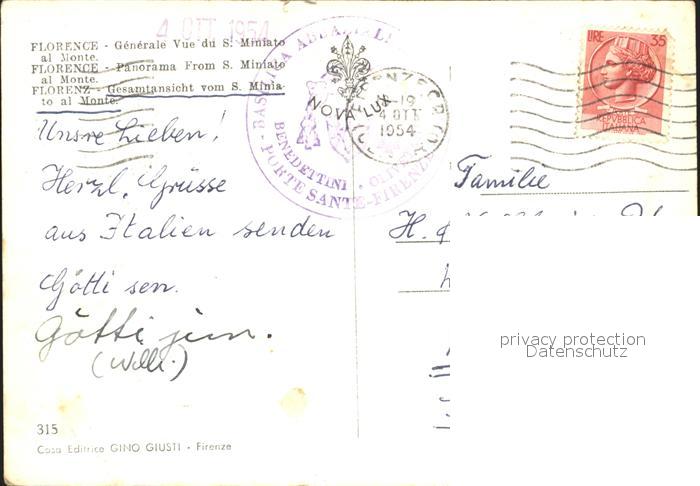 4 OTT 1954
FLORENCE - Générale Vue du S. Miniato
al Monte.
FLORENCE - Panorama From S. Miniato
al Monte.
FLORENZ - Gesamtansicht vom S. Minia-
to al Monte.
BASILICA ABBAZIALE
NOVA LUX
BENEDETTINI OLIV
PORTE SANTE - FIRENZE
FIRENZE
-19
4 OTT
1954
LIRE 35
REPVBBLICA
ITALIANA
Unsre Lieben!
Herzl. Grüsse
aus Italien senden
Götti sen.
Götti jun.
(Willi.)
Familie
H.
privacy protection
Datenschutz
315
Casa Editrice GINO GIUSTI - Firenze